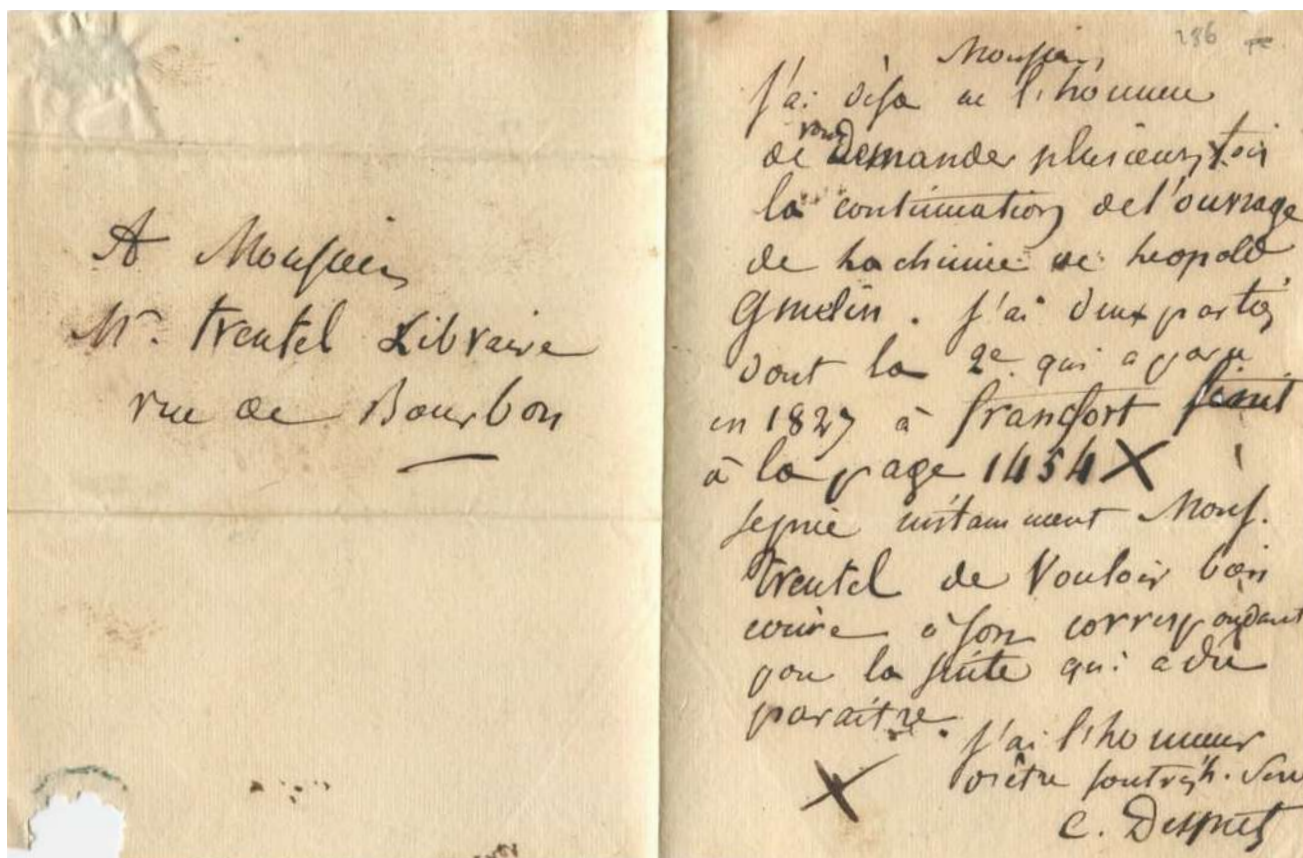 A Monsieur
Mr. treutel Libraire
rue de Bourbon
286
Monsieur,
j'ai déja eu l'honneur
de vous demander plusieurs fois
la continuation de l'ouvrage
de La chimie de Leopold
Gmelin. j'ai deux parties
dont la 2e. qui a paru
en 1827 à francfort finit
à la page 1454 X
je prie instamment Mons.
treutel de vouloir bien
écrire à son correspondant
pour la suite qui a dû
paraitre.
j'ai l'honneur
d'être votre tr. h. Serv
X
C. Despretz